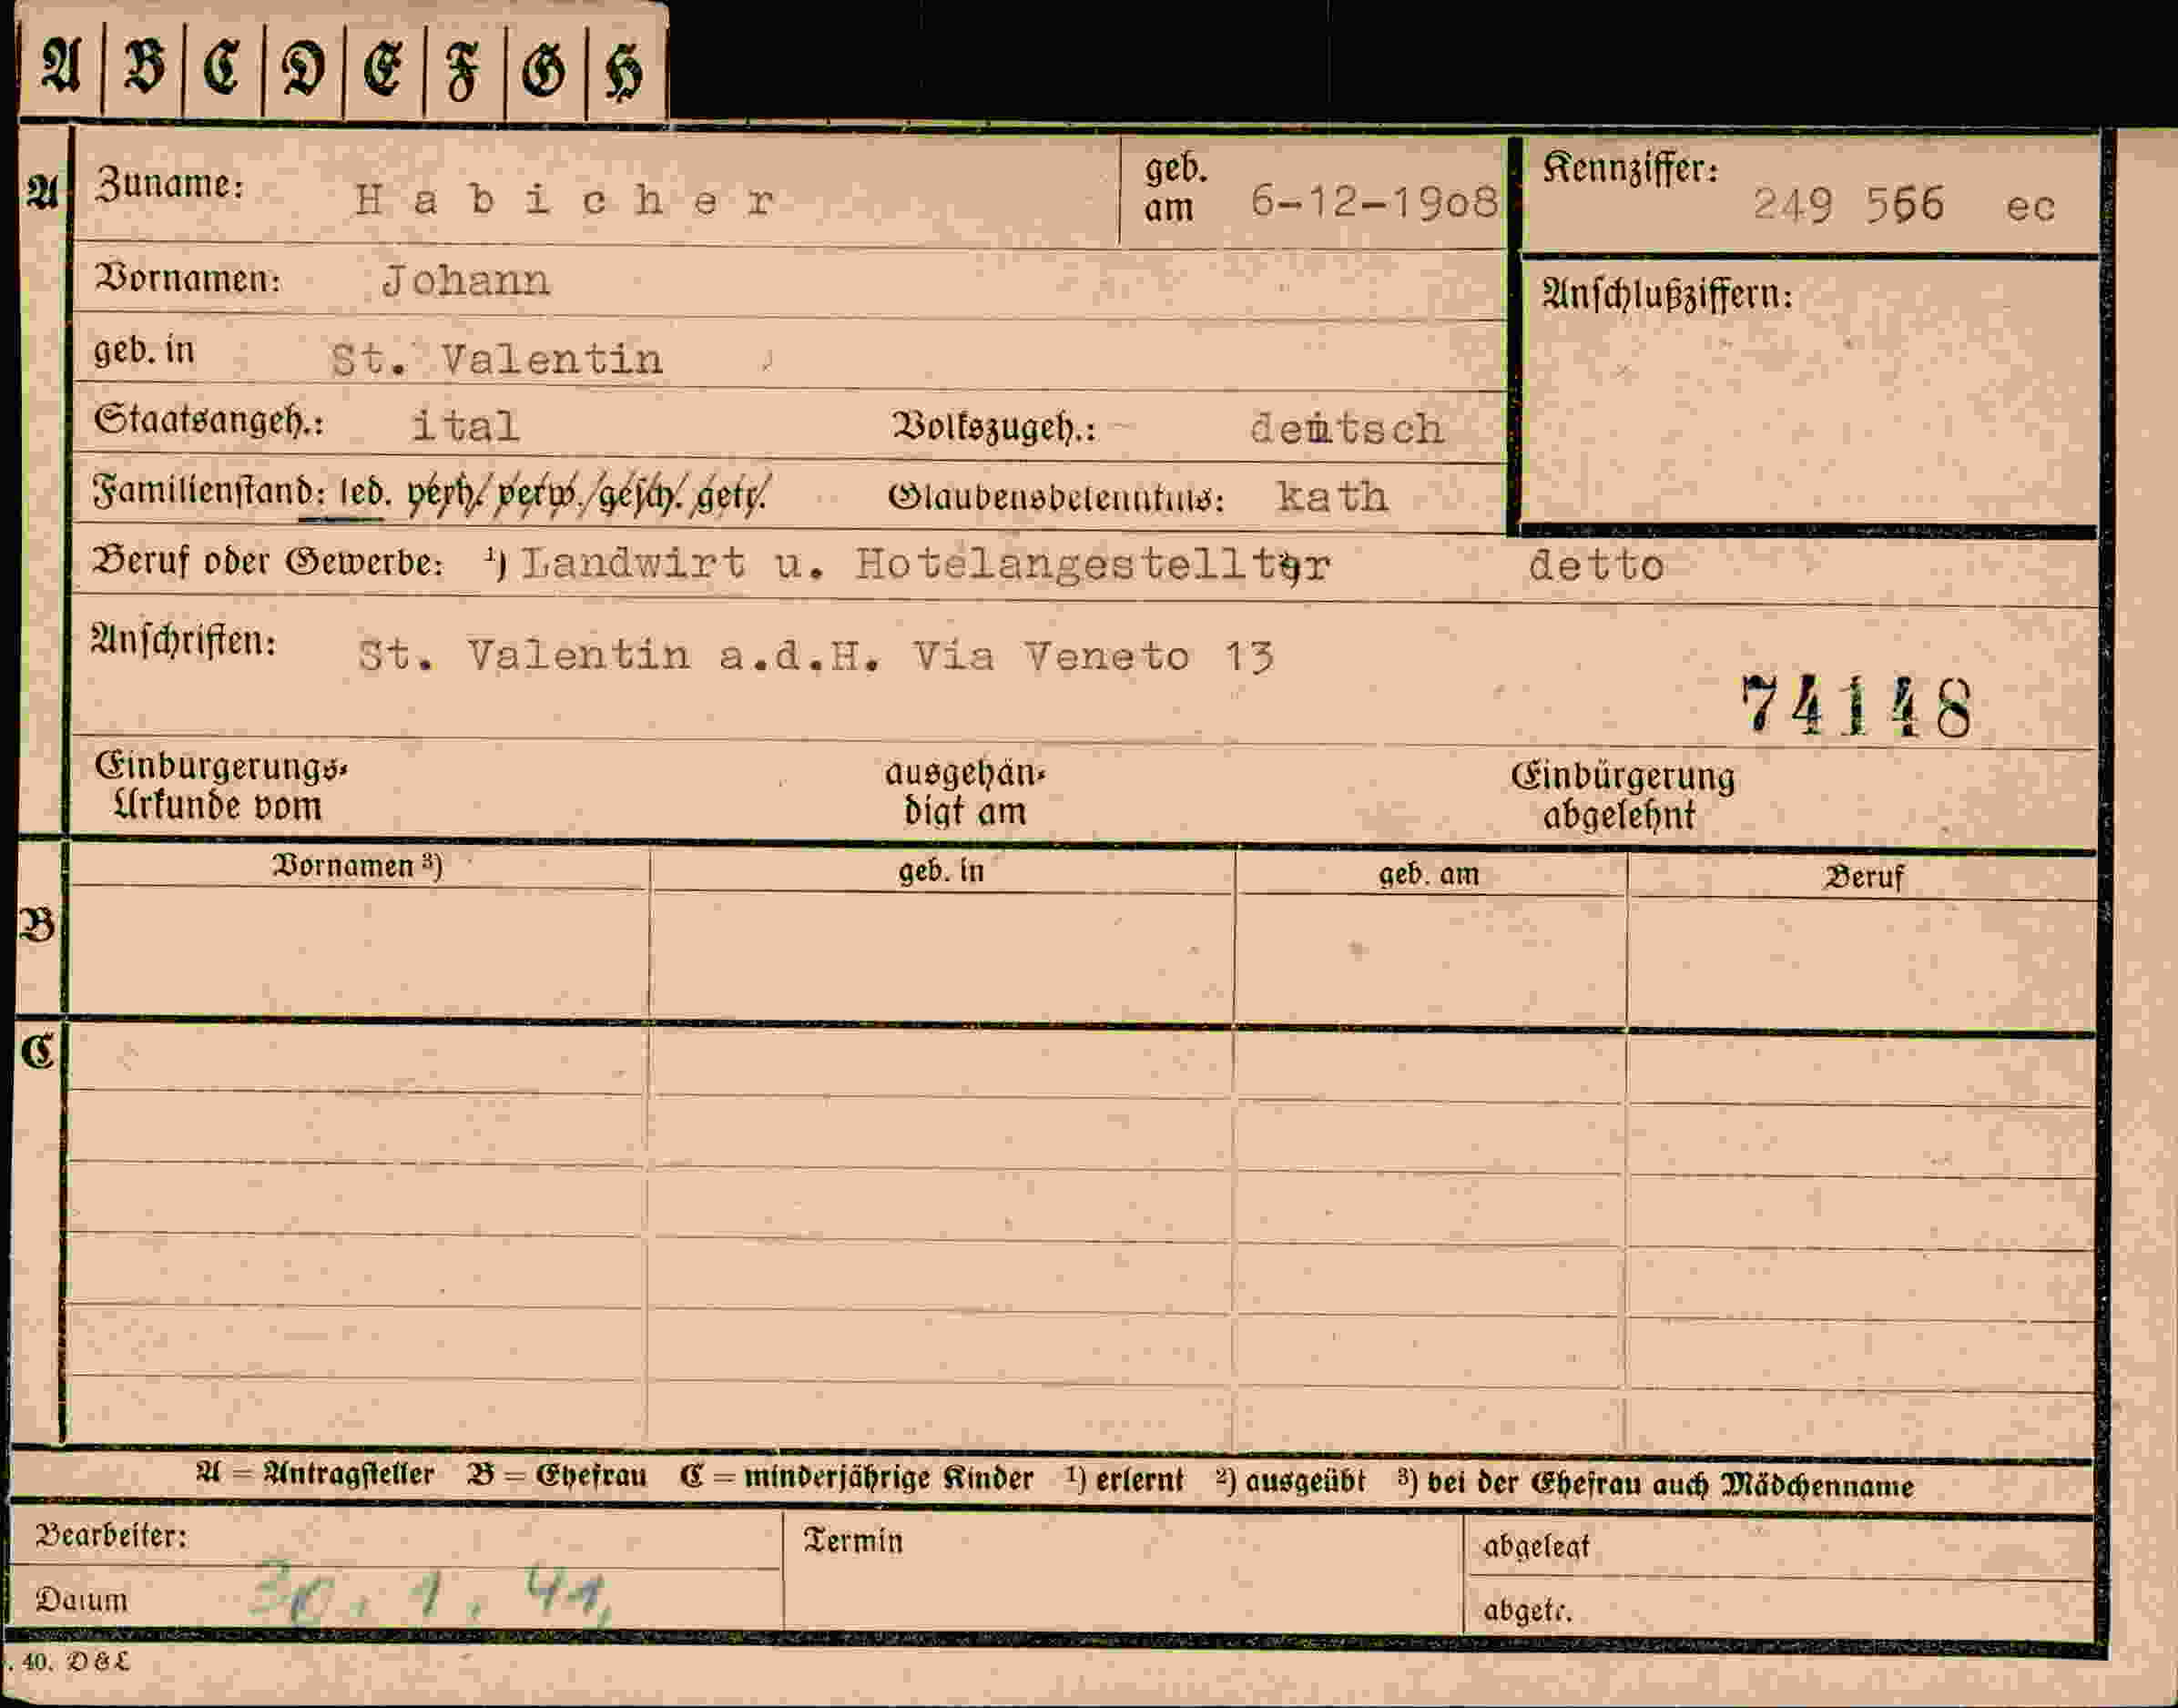 A B C D E F G H
A Zuname: Habicher geb. am 6-12-1908 Kennziffer: 249 566 ec
Vornamen: Johann Anschlußziffern:
geb. in St. Valentin
Staatsangeh.: ital Volkszugeh.: deutsch
Familienstand: led. verh. verw. gesch. getr. Glaubensbekenntnis: kath
Beruf oder Gewerbe: ¹) Landwirt u. Hotelangestellter detto
Anschriften: St. Valentin a.d.H. Via Veneto 13
74148
Einbürgerungs- ausgehän- Einbürgerung
Urkunde vom digt am abgelehnt
Vornamen ³) geb. in geb. am Beruf
B
C
A = Antragsteller B = Ehefrau C = minderjährige Kinder ¹) erlernt ²) ausgeübt ³) bei der Ehefrau auch Mädchenname
Bearbeiter: Termin abgelegt
Datum 30. 1. 41. abgetr.
. 40. D & L